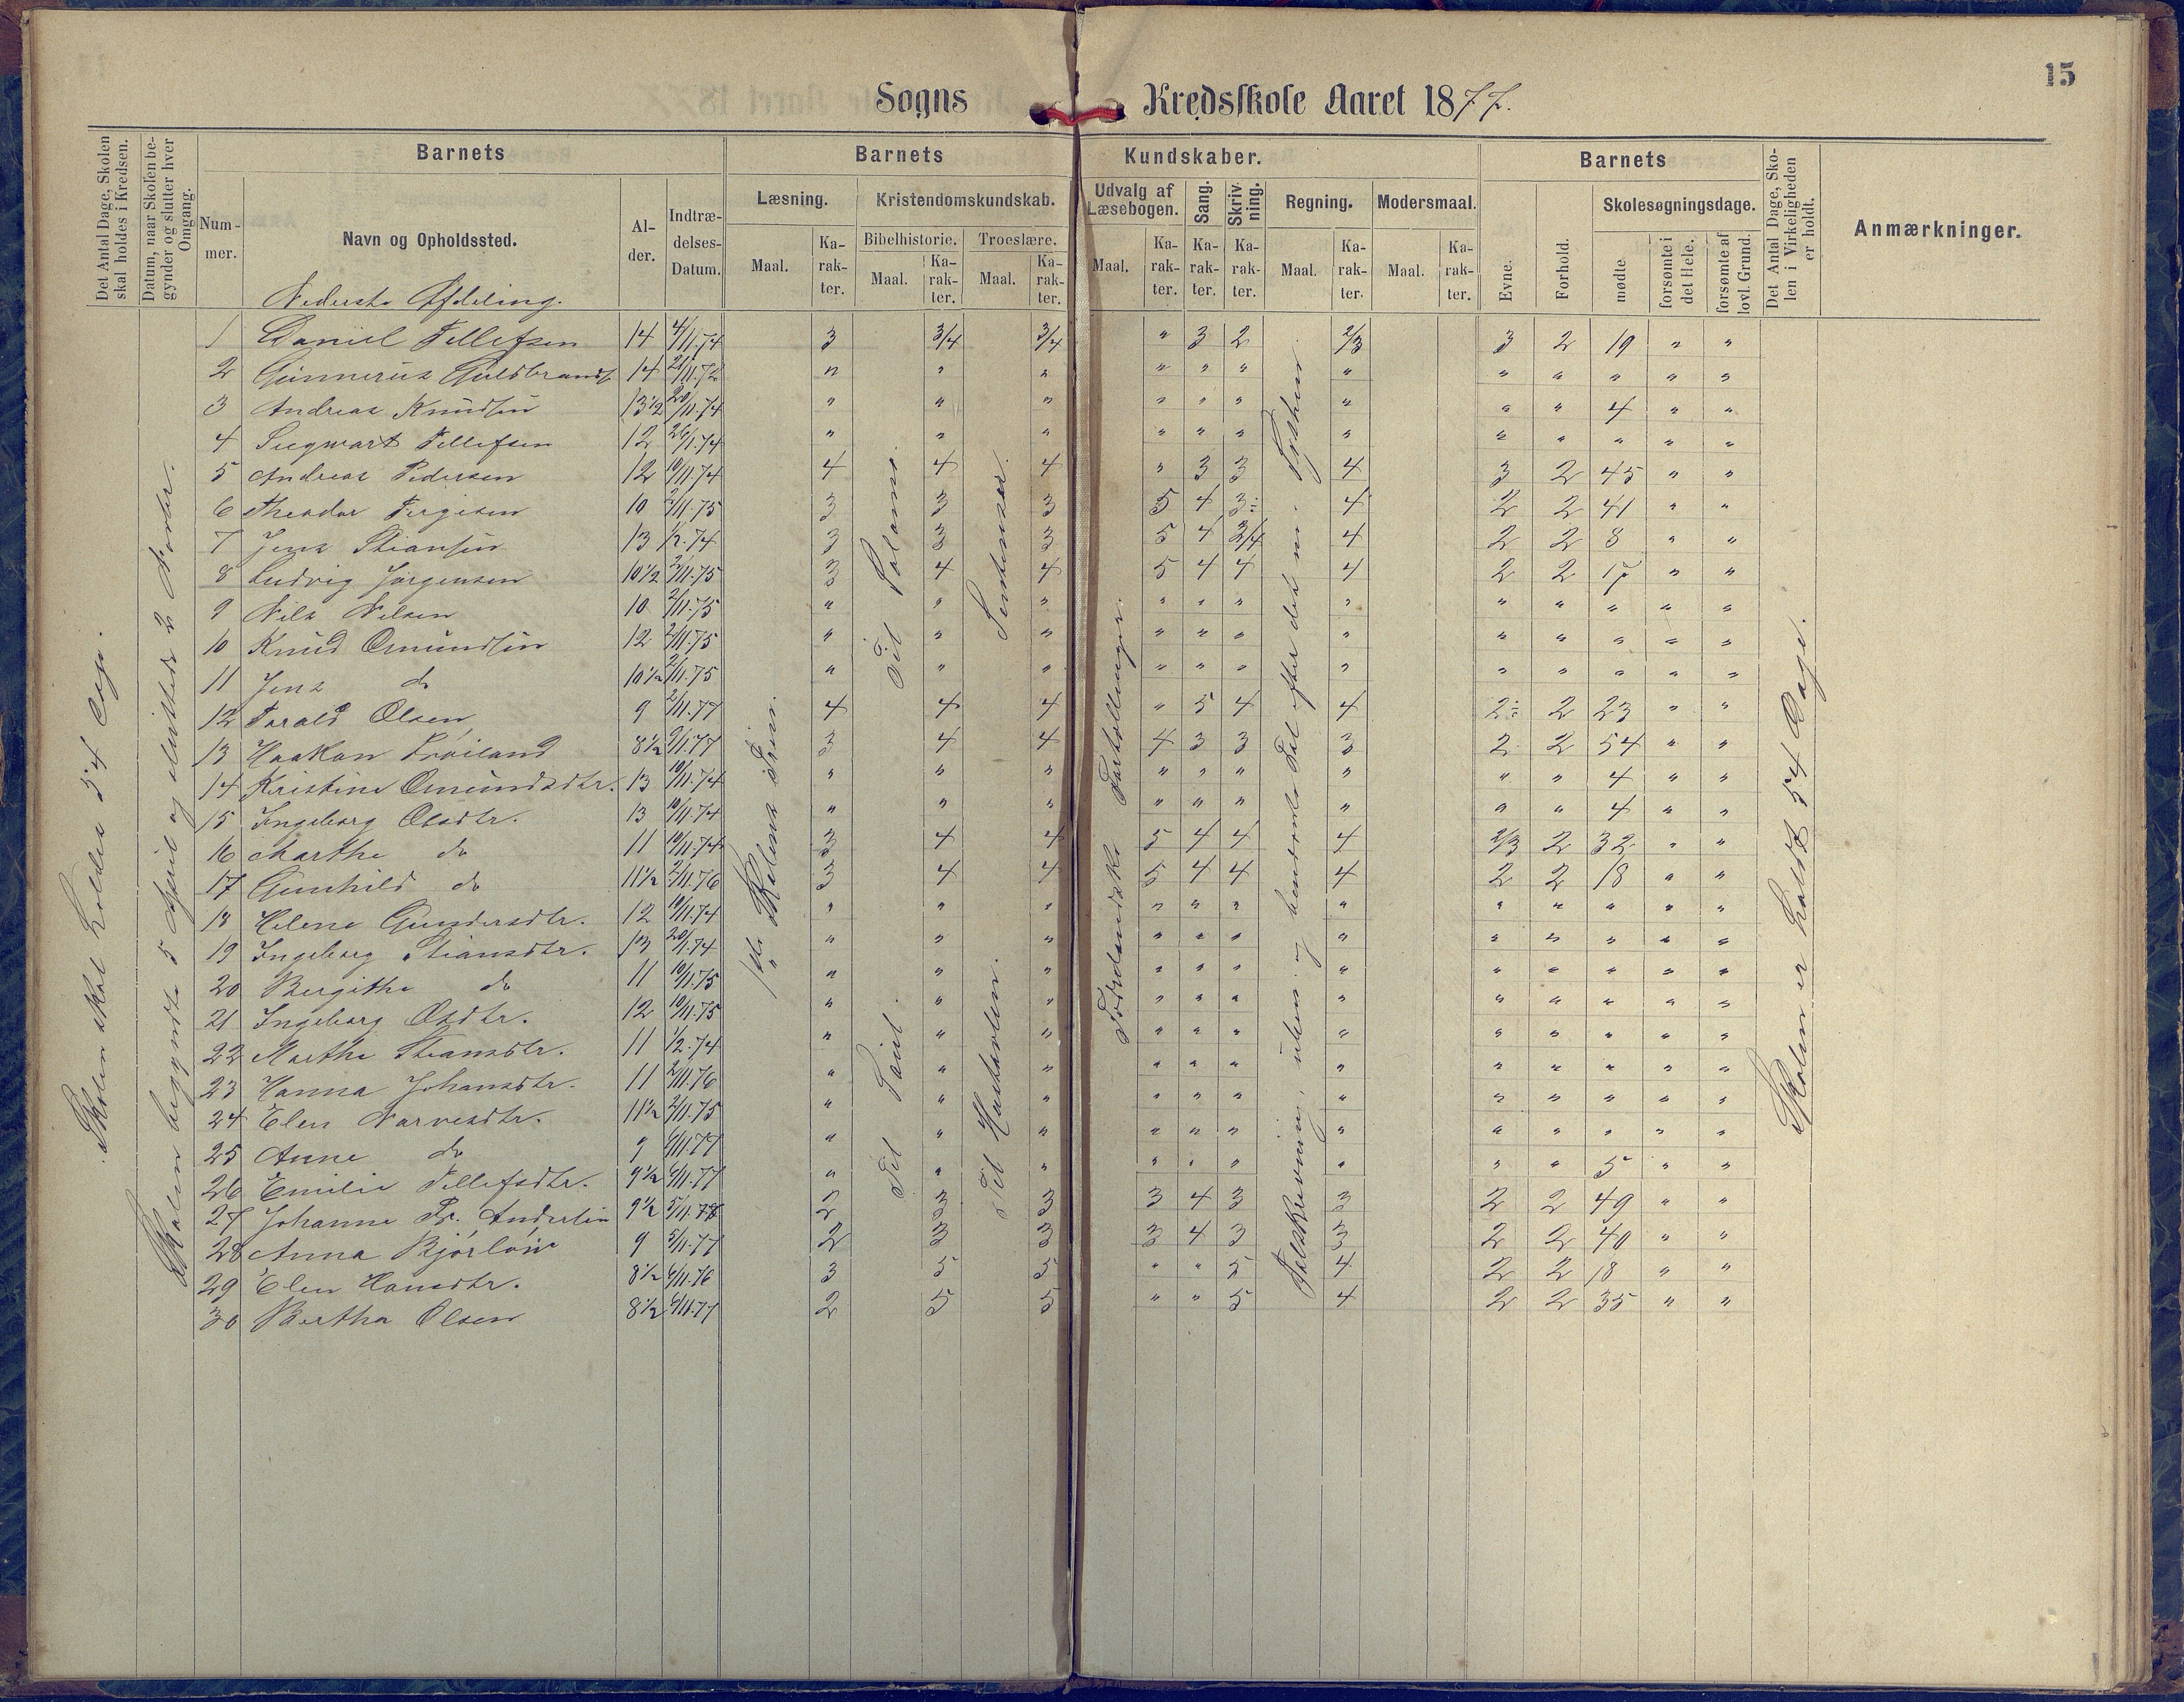 15
Sogns Kredsskole Aaret 1877.
Det Antal Dage, Skolen skal holdes i Kredsen.
Datum, naar Skolen begynder og slutter hver Omgang.
Barnets
Barnets
Kundskaber.
Barnets
Det Antal Dage, Skolen i Virkeligheden er holdt.
Anmærkninger.
Nummer.
Navn og Opholdssted.
Alder.
Indtrædelses-Datum.
Læsning.
Kristendomskundskab.
Udvalg af Læsebogen.
Sang.
Skrivning.
Regning.
Modersmaal.
Evne.
Forhold.
Skolesøgningsdage.
Bibelhistorie.
Troeslære.
Maal.
Karakter.
Maal.
Karakter.
Maal.
Karakter.
Maal.
Karakter.
Karakter.
Karakter.
Maal.
Karakter.
Maal.
Karakter.
mødte.
forsømte i det Hele.
forsømte af lovl. Grund.
Nederste Afdeling.
Skolen skal holdes 54 Dage.
Skolen begyndte 5 April og sluttede 2
1 Daniel Tellefsen 14 4/11.74 3 3/4 3/4 " 3 2 2/3 3 2 19 " "
2 Gunnerius Guldbrands 14 " " " " " " " " " " " "
3 Andreas Knudsen 13 1/2 20/11.74 " " " " " " " " " 4 " "
4 Seegwart Tellefsen 12 26/1.74 " " " " " " " " " " " "
5 Andreas Pedersen 12 10/11.74 4 4 4 " 3 3 4 3 2 45 " "
6 Theodor Tergesen 10 2/11.75 3 3 3 5 4 3÷ 4 2 2 41 " "
7 Jens Stiansen 13 1/2.74 3 3 3 5 4 3/4 4 2 2 8 " "
8 Ludvig Jørgensen 10 1/2 2/11.75 3 4 4 5 4 4 4 2 2 17 " "
9 Nils Nilsen 10 2/11.75 " " " " " " " " " " " "
10 Knud Omundsen 12 2/11.75 " " " " " " " " " " " "
11 Jens do 10 1/2 2/11.75 " " " " " " " " " " " "
12 Tarald Olsen 9 2/11.77 4 4 4 " 5 4 4 2÷ 2 23 " "
13 Haakon Frøiland 8 1/2 9/11.77 3 4 4 4 3 3 3 2 2 54 " "
14 Kristine Omundsdtr. 13 10/11.74 " " " " " " " " " 4 " "
15 Ingeborg Olsdtr. 13 10/11.74 " " " " " " " " " 4 " "
16 Marthe do 11 10/11.74 3 4 4 5 4 4 4 2/3 2 32 " "
17 Gunhild do 11 1/2 2/11.76 3 4 4 5 4 4 4 2 2 18 " "
18 Helene Gundersdtr. 12 10/11.74 " " " " " " " " " " " "
19 Ingeborg Stiansdtr. 13 20/1.74 " " " " " " " " " " " "
20 Bergithe do 11 10/11.75 " " " " " " " " " " " "
21 Ingeborg Olsdtr. 12 10/11.75 " " " " " " " " " " " "
22 Marthe Stiansdtr. 11 1/2.74 " " " " " " " " " " " "
23 Hanna Johansdtr. 11 2/11.76 " " " " " " " " " " " "
24 Elen Narvesdtr. 11 1/2 2/11.75 " " " " " " " " " " " "
25 Anne do 9 6/11.77 " " " " " " " " " " " "
26 Emilie Tellefsdtr. 9 1/2 6/11.77 " " " " " " " " " 5 " "
27 Johanne Fr. 9 1/2 5/11.78 2 3 3 3 4 3 3 2 2 49 " "
28 Anna 9 5/11.77 2 3 3 3 4 3 3 2 2 40 " "
29 Elen Hansdtr. 8 1/2 6/11.76 3 5 5 " " 5 4 2 2 18 " "
30 Bertha Olsen 8 1/2 6/11.77 2 5 5 " " 5 4 2 2 35 " "
1ste Kelens Trin
Til Salomo.
Til Saul.
Sentenser.
Til Hustavlen.
Fædrelandske Fortællinger.
Talskrivning, og benævnte Tal efter det
Skolen er holdt 54 Dage.